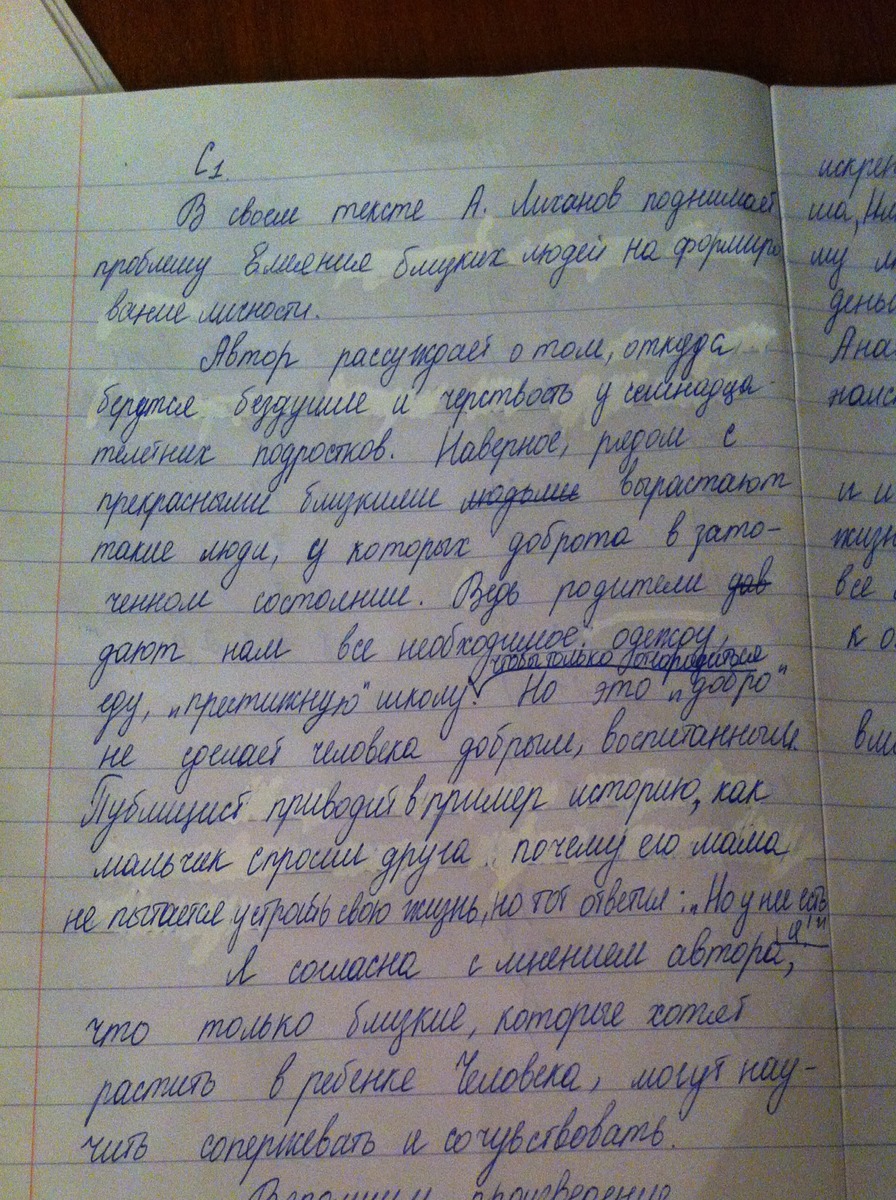 С1.
В своем тексте А. Лиханов поднимает
проблему влияния близких людей на формиро
вание личности.
Автор рассуждает о том, откуда
берутся бездушие и черствость у семнадца-
телетних подростков. Наверное, рядом с
прекрасными близкими людьми вырастают
такие люди, у которых доброта в зато-
ченном состоянии. Ведь родители дав
дают нам все необходимое: одежду,
чтобы только отгородиться
еду, „престижную" школу. Но это „добро"
не сделает человека добрым, воспитанным.
Публицист приводит в пример историю, как
мальчик спросил друга почему его мама
не пытается устроить свою жизнь, но тот ответил: „Но у нее есть
я!"
Я согласна с мнением автора,
что только близкие, которые хотят
растить в ребенке Человека, могут нау-
чить сопержевать и сочувствовать.
произведение
искрен
му
день
Ана
поис
и и
жизн
все
к о